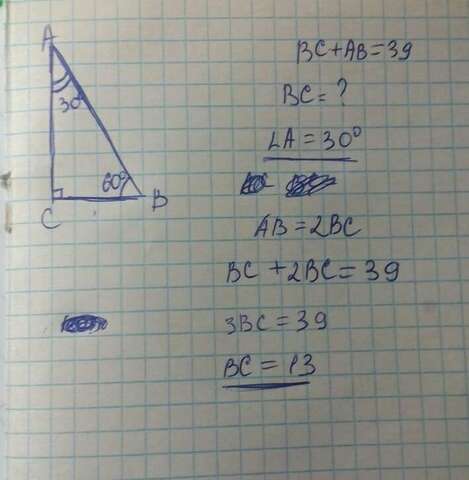 A
30°
60°
C
B
BC+AB=39
BC=?
∠A=30°
AB=2BC
BC+2BC=39
3BC=39
BC=13